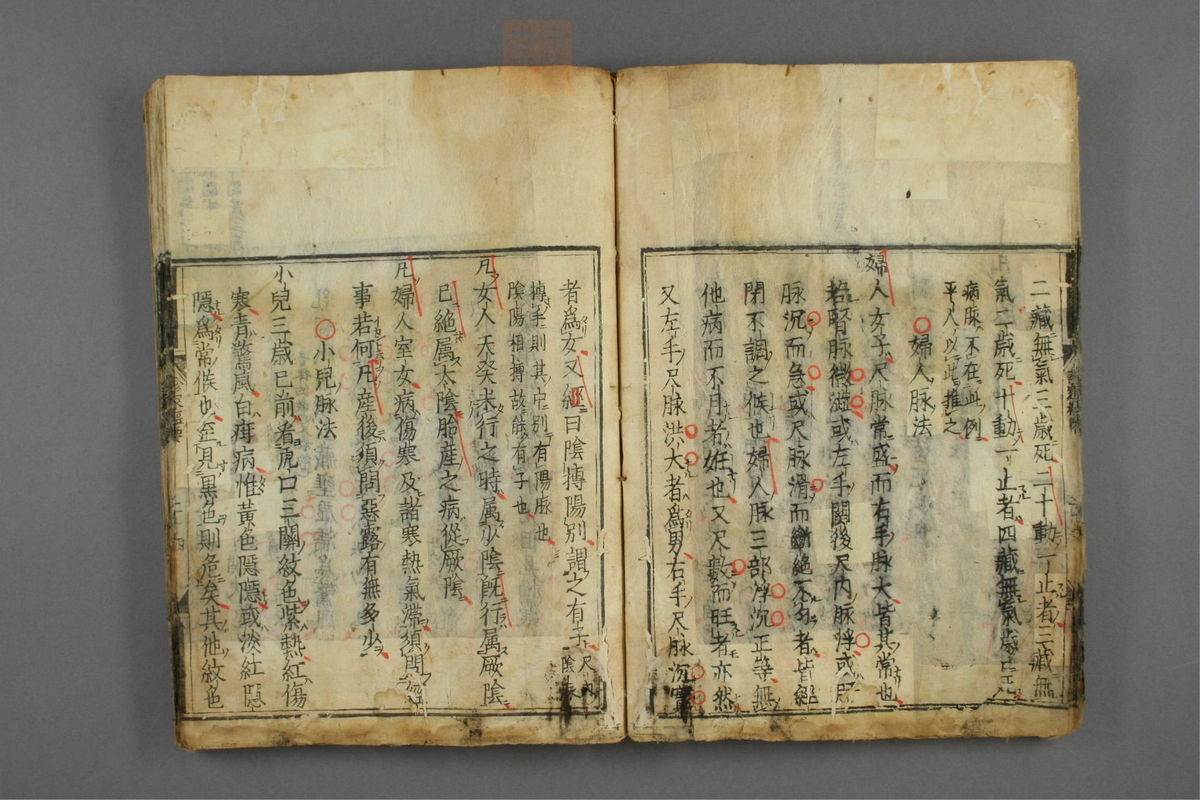 二藏無氣三歲死二十動一止者三藏無
氣二歲死十動一止者四藏無氣歲
病脉不在此例
平人以此推之
○婦人脉法
婦人女子尺脉常盛而右手脉大皆其常也
若腎脉微澁或左手關後尺內脉浮或
脉沉而急或尺脉滑而斷絕不勻者皆經
閉不調之候也婦人脉三部浮沉正等無
他病而不月者妊也又尺數而旺者亦然
又左手尺脉洪大者爲男右手尺脉沉實
者爲女又經曰陰搏陽別謂之有子
搏手則其中別有陽脉也
陰陽相搏故能有子也
凡女人天癸未行之時属少陰旣行属厥陰
已絕属太陰胎產之病從厥陰
凡婦人室女病傷寒及諸寒熱氣滯須問
事若何凡產後須問惡露有無多少
○小兒脉法
小兒三歲已前看虎口三關紋色紫熱紅傷
寒青驚風白疳病惟黃色隱隱或淡紅隱
隱爲常候也至見黑色則危矣其他紋色